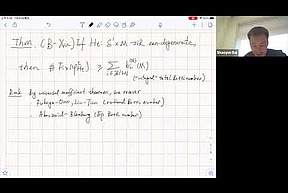 Thm. (B-Xu) If H: S¹×M→ℝ non-degenerate,
then # Fix(φ_H) ≥ Σ b (M)
("integral" total Betti number)
Rmk By universal coefficient theorem, we recover
Fukaya-Ono, Liu-Tian (rational Betti number)
Abouzaid-Blumberg (Betti number)
Shaoyun Bai